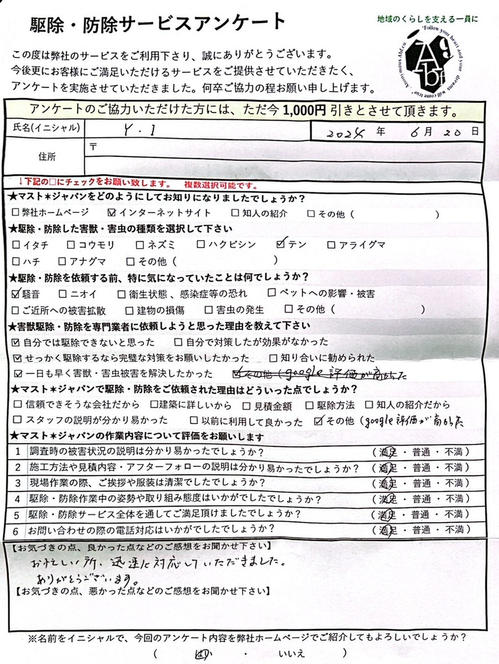 駆除・防除サービスアンケート
地域のくらしを支える一員に
この度は弊社のサービスをご利用下さり、誠にありがとうございます。
今後更にお客様にご満足いただけるサービスをご提供させていただきたく、
アンケートを実施させていただきました。何卒ご協力の程お願い申し上げます。
アンケートのご協力いただけた方には、ただ今1,000円引きとさせて頂きます。
氏名(イニシャル) Y.I 2024 年 6月 20日
住所 〒
↓下記の□にチェックをお願い致します。 複数選択可能です。
★マスト＊ジャパンをどのようにしてお知りになりましたでしょうか?
□弊社ホームページ ☑インターネットサイト □知人の紹介 □その他（ ）
★駆除・防除した害獣・害虫の種類を選択して下さい
□イタチ □コウモリ □ネズミ □ハクビシン ☑テン □アライグマ
□ハチ □アナグマ □その他（ ）
★駆除・防除を依頼する前、特に気になっていたことは何でしょうか?
☑騒音 □ニオイ □衛生状態、感染症等の恐れ □ペットへの影響・被害
□ご近所への被害拡散 □建物の損傷 □害虫の発生 □その他（ ）
★害獣駆除・防除を専門業者に依頼しようと思った理由を教えて下さい
☑自分では駆除できないと思った □自分で対策したが効果がなかった
☑せっかく駆除するなら完璧な対策をお願いしたかった □知り合いに勧められた
☑一日も早く害獣・害虫被害を解決したかった ☑その他（google評価が高かった
★マスト＊ジャパンで駆除・防除をご依頼された理由はどういった点でしょうか?
□信頼できそうな会社だから □建築に詳しいから □見積金額 □駆除方法 □知人の紹介だから
□スタッフの説明が分かり易かった □以前に利用して良かった ☑その他（google評価が高かった
★マスト＊ジャパンの作業内容について評価をお願いします
1 調査時の被害状況の説明は分かり易かったでしょうか?（満足・普通・不満）
2 施工方法や見積内容・アフターフォローの説明は分かり易かったでしょうか?（満足・普通・不満）
3 現場作業の際、ご挨拶や服装は清潔でしたでしょうか?（満足・普通・不満）
4 駆除・防除作業中の姿勢や取り組み態度はいかがでしたでしょうか?（満足・普通・不満）
5 駆除・防除サービス全体を通してご満足頂けましたでしょうか?（満足・普通・不満）
6 お問い合わせの際の電話対応はいかがでしたでしょうか?（満足・普通・不満）
【お気づきの点、良かった点などのご感想をお聞かせ下さい】
お忙しい所、迅速に対応していただきました。
ありがとうございます。
【お気づきの点、悪かった点などのご感想をお聞かせ下さい】
※名前をイニシャルで、今回のアンケート内容を弊社ホームページでご紹介してもよろしいでしょうか?
（ はい ・ いいえ ）